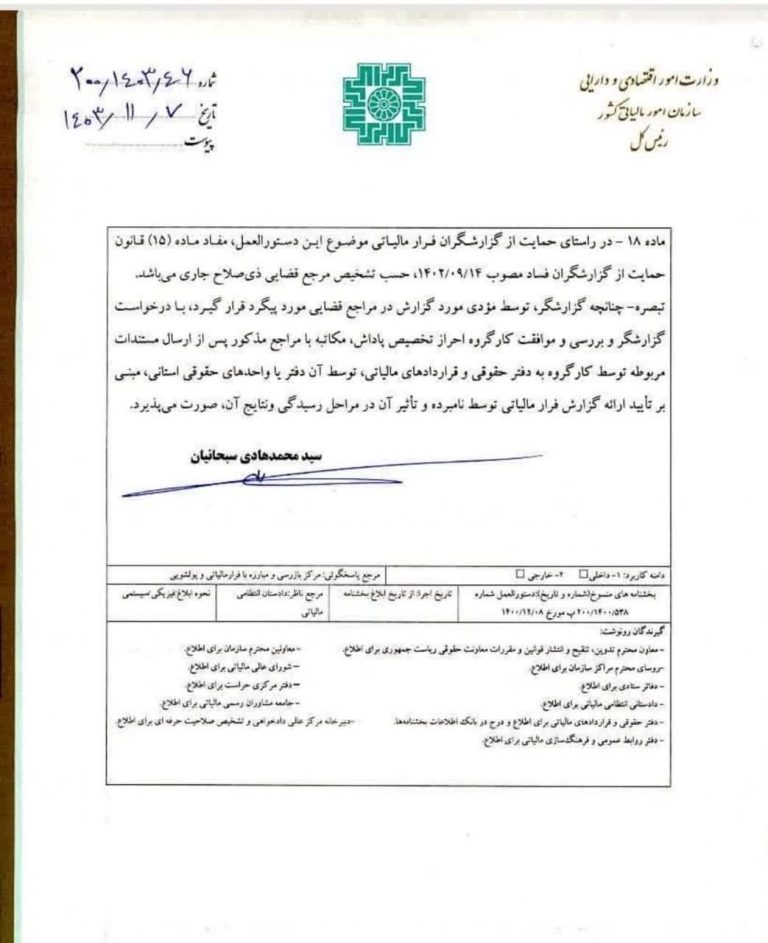 وزارت امور اقتصادی و دارایی
سازمان امور مالیاتی کشور
رئیس کل
شماره ۲۰۰/۱۴۰۳/۴۶
تاریخ ۱۴۰۳/۱۱/۷
پیوست
ماده ۱۸ - در راستای حمایت از گزارشگران فرار مالیاتی موضوع این دستورالعمل، مفاد ماده (۱۵) قانون
حمایت از گزارشگران فساد مصوب ۱۴۰۲/۰۹/۱۴، حسب تشخیص مرجع قضایی ذی‌صلاح جاری می‌باشد.
تبصره- چنانچه گزارشگر، توسط مؤدی مورد گزارش در مراجع قضایی مورد پیگرد قرار گیرد، با درخواست
گزارشگر و بررسی و موافقت کارگروه احراز تخصیص پاداش، مکاتبه با مراجع مذکور پس از ارسال مستندات
مربوطه توسط کارگروه به دفتر حقوقی و قراردادهای مالیاتی، توسط آن دفتر یا واحدهای حقوقی استانی، مبنی
بر تأیید ارائه گزارش فرار مالیاتی توسط نامبرده و تأثیر آن در مراحل رسیدگی ونتایج آن، صورت می‌پذیرد.
سید محمدهادی سبحانیان
دامنه کاربرد: ۱- داخلی□ ۲- خارجی □
مرجع پاسخگوئی: مرکز بازرسی و مبارزه با فرارمالیاتی و پولشویی
بخشنامه های منسوخ(شماره و تاریخ):دستورالعمل شماره
۲۰۰/۱۴۰۰/۵۳۸ پ مورخ ۱۴۰۰/۱۲/۰۸
تاریخ اجرا: از تاریخ ابلاغ بخشنامه
مرجع ناظر:دادستان انتظامی
مالیاتی
نحوه ابلاغ:فیزیکی/سیستمی
گیرندگان رونوشت:
- معاون محترم تدوین، تنقیح و انتشار قوانین و مقررات معاونت حقوقی ریاست جمهوری برای اطلاع.
-روسای محترم مراکز سازمان برای اطلاع.
- دفاتر ستادی برای اطلاع.
- دادستانی انتظامی مالیاتی برای اطلاع.
- دفتر حقوقی و قراردادهای مالیاتی برای اطلاع و درج در بانک اطلاعات بخشنامه‌ها.
- دفتر روابط عمومی و فرهنگ‌سازی مالیاتی برای اطلاع.
- معاونین محترم سازمان برای اطلاع.
- شورای عالی مالیاتی برای اطلاع.
- دفتر مرکزی حراست برای اطلاع.
- جامعه مشاوران رسمی مالیاتی برای اطلاع.
-دبیرخانه مرکز عالی دادخواهی و تشخیص صلاحیت حرفه ای برای اطلاع.